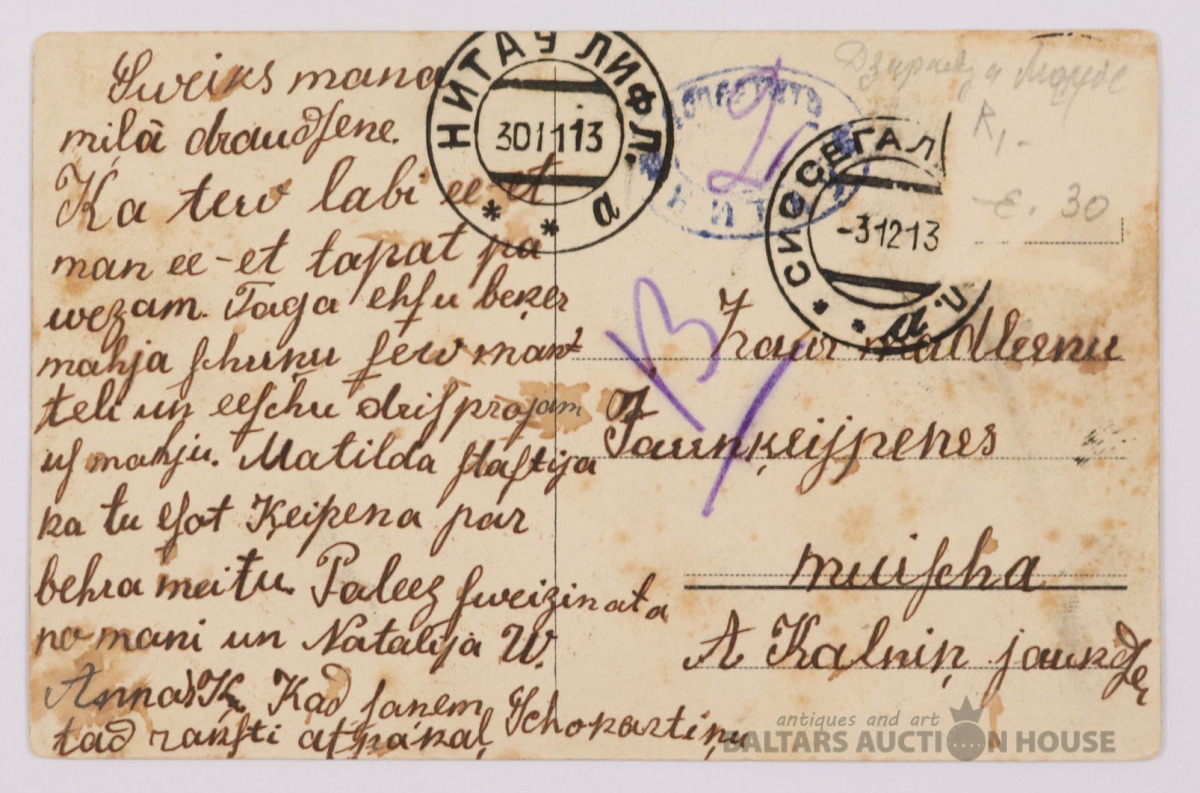 Sweiks mana
miļā draudsene.
Ka tew labi ee-et
man ee-et tapat pa
wezam. Taga ehsu beķer
mahja schuņu sew mant
teli un eeschu dris projam
us mahju. Matilda stastija
ka tu esot Ķeipena par
behra meitu. Paleez sweizinata
no mani un Natalija W.
Anna K. Kad saņem
tad raksti atpakaļ Schokartiņu
НИТАУ ЛИФЛ. а
30 11 13
СИССЕГАЛ
-3 12 13
а
R,.
-E. 30
madleenu
Jaunķeijpenes
muischa
A Kalniņ jaukdse
antiques and art
BALTARS AUCTION HOUSE